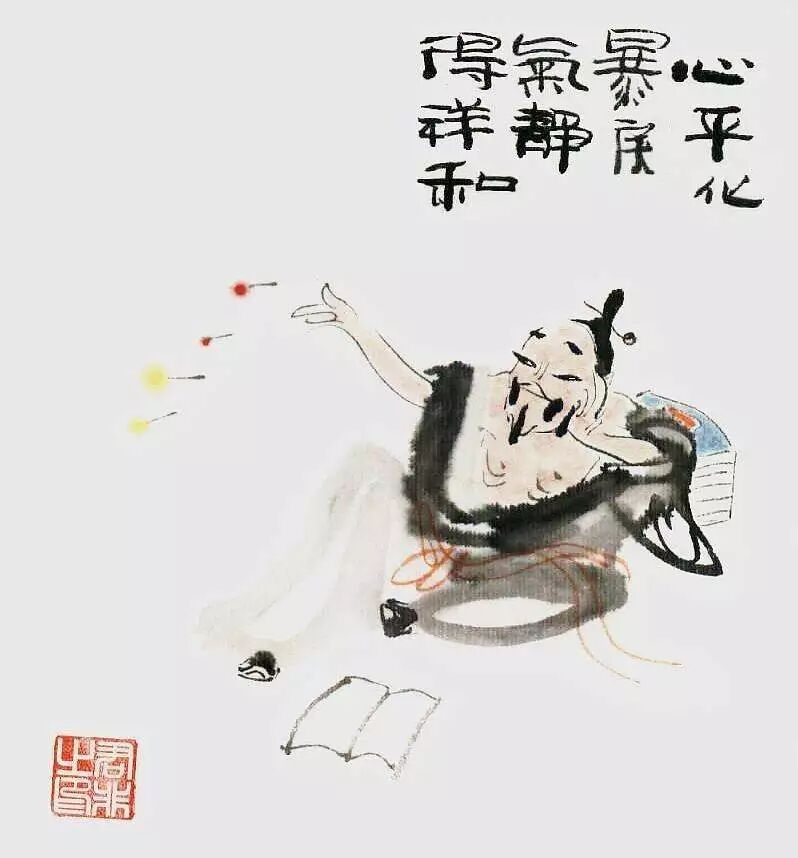 心平化
暴戾
氣靜
得祥和